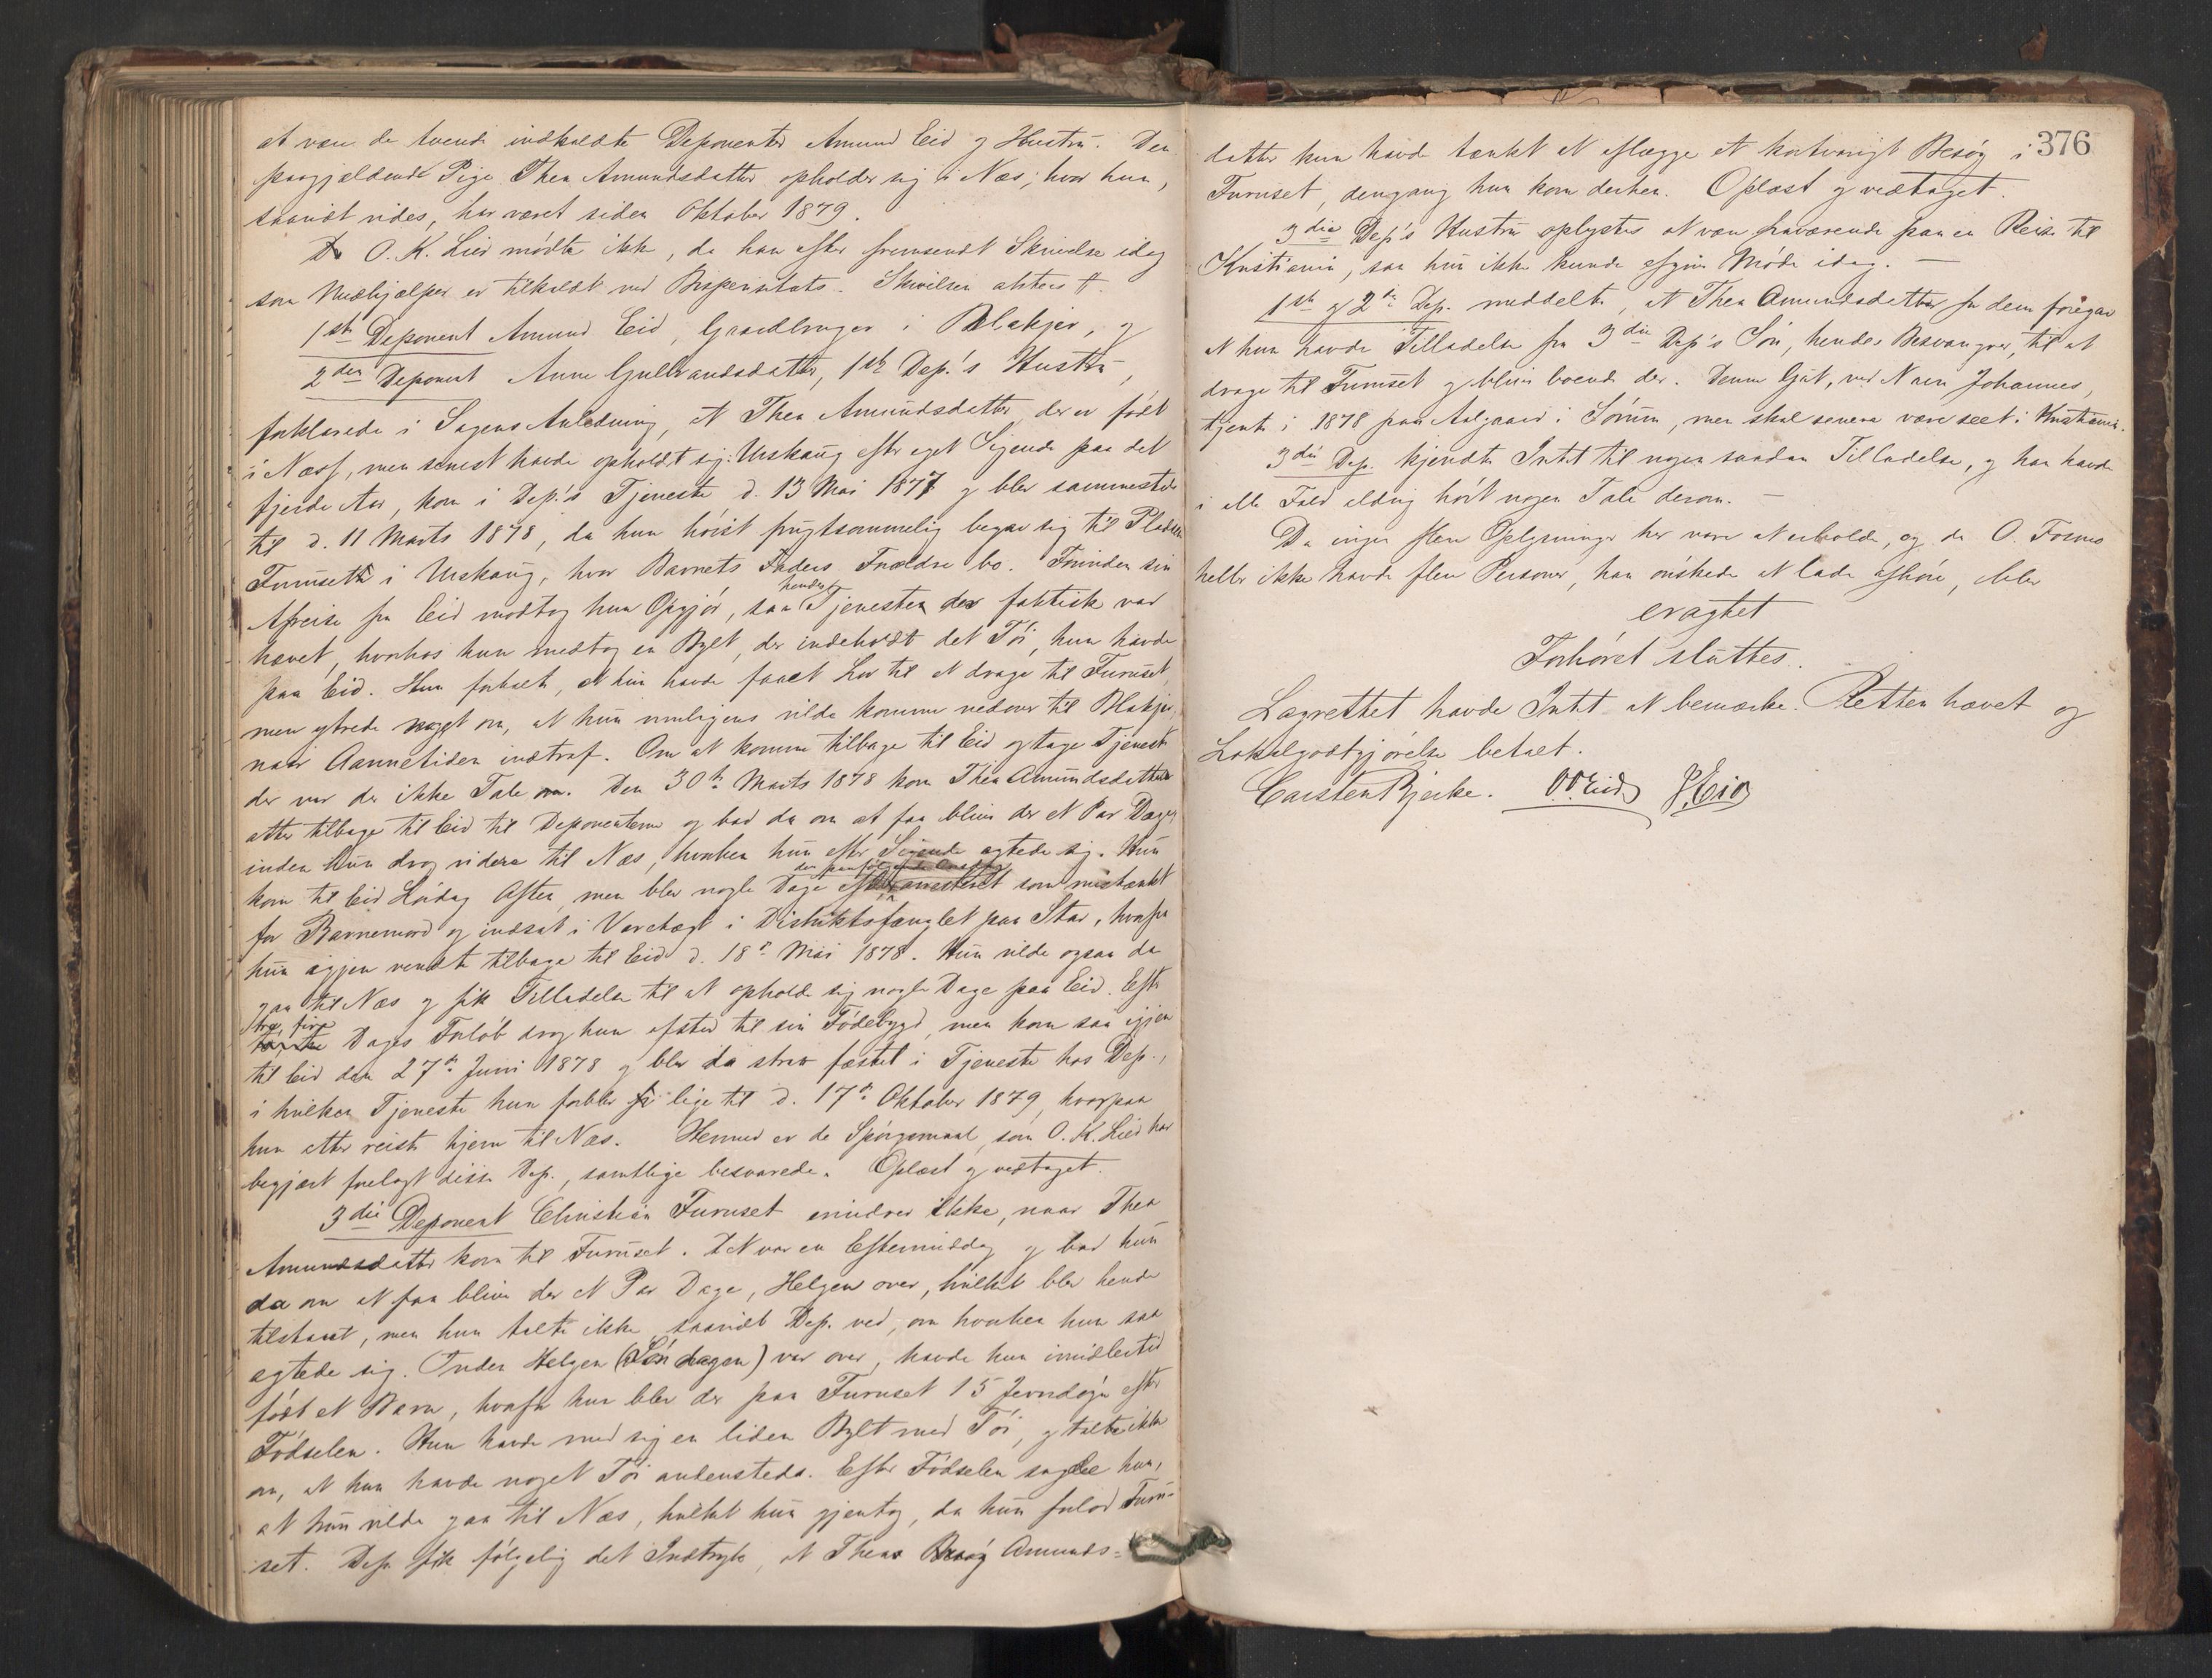 at være de tvende indkaldte Deponenter Amund Eid og Hustru. Den
paagjældende Pige Thea Amundsdatter opholder sig i Næs, hvor hun,
saavidt vides, har været siden Oktober 1879.
O. K. Lied mødte ikke, da han efter fremsendt Skrivelse idag
som er tilkaldt ved Skrivelsen
1ste Deponent Amund Eid, Gaardbruger i Blakjer, og
2den Deponent Anne Gulbrandsdatter, 1ste Dep.'s Hustru,
forklarede i Sagens Anledning, at Thea Amundsdatter, der er født
i Næss, men senest havde opholdt sig i Urskaug efter eget Sigende paa det
fjerde Aar, kom i Dep.'s Tjeneste d. 13 Mai 1877 og blev sammesteds
til d. 11 Marts 1878, da hun høist frugtsommelig begav sig til Pladsen
Furuset i Urskaug, hvor Barnets Faders Forældre bo. Forinden sin
Afreise fra Eid modtog hun Opgjør, saa hendes Tjeneste der faktisk var
hævet, hvorhos hun medtog en Bylt, der indeholdt det Tøi, hun havde
paa Eid. Hun fortalte, at hun havde faaet Lov til at drage til Furuset,
men ytrede noget om, at hun muligens vilde komme nedover til Blakjer,
naar Aannetiden indtraf. Om at komme tilbage til Eid og tage Tjeneste
der var der ikke Tale om. Den 30te Marts 1878 kom Thea Amundsdatter
atter tilbage til Eid til Deponenterne og bad da om at faa blive der et Par Dage,
inden hun drog videre til Næs, hvorhen hun efter Sigende agtede sig. Hun
kom til Eid Lørdag Aften, men blev nogle Dage efter den paafølgende Onsdag arresteret som mistænkt
for Barnemord og indsat i Varetægt i Distriktsfængslet paa , hvorfra
hun igjen vendte tilbage til Eid d. 18de Mai 1878. Hun vilde ogsaa da
gaa til Næs og fik Tilladelse til at opholde sig nogle Dage paa Eid. Efter
tre, fire Dages Forløb drog hun afsted til sin Fødebygd, men kom saa igjen
til Eid den 27de Juni 1878 og blev da strax fæstet i Tjeneste hos Dep.,
i hvilken Tjeneste hun forblev lige til d. 17de Oktober 1879, hvorpaa
hun atter reiste hjem til Næs. Hermed er de Spørgsmaal, som O. K. Lied har
begjært forelagt disse Dep., samtlige besvarede. Oplæst og vedtaget.
3die Deponent Christian Furuset erindrer ikke, naar Thea
Amundsdatter kom til Furuset. Det var en Eftermiddag og bad hun
da om at faa blive der et Par Dage, Helgen over, hvilket blev hende
tilstaaet, men hun talte ikke, saavidt Dep. ved, om hvorhen hun saa
agtede sig. Inden Helgen (Søndagen) var over, havde hun imidlertid
født et Barn, hvorfor hun blev der paa Furuset 15 Jevndøgn efter
Fødselen. Hun havde med sig en liden Bylt med Tøi, og talte ikke
om, at hun havde noget Tøi andensteds. Efter Fødselen sagde hun,
at hun vilde gaa til Næs, hvilket hun gjentog, da hun forlod Furu-
set. Dep. fik følgelig det Indtryk, at Thea Amunds-
376
datter kun havde tænkt at aflægge et kortvarigt Besøg i
Furuset, dengang hun kom derhen. Oplæst og vedtaget.
3die Dep's Hustru oplystes at være fraværende paa en Reise til
Kristiania, saa hun ikke kunde afgive Møde idag. —
1ste og 2den Dep. meddelte, at Thea Amundsdatter for dem foregav
at hun havde Tilladelse fra 3die Dep's Søn, hendes Besvangrer, til at
drage til Furuset og blive boende der. Denne Gut, ved Navn Johannes,
tjente i 1878 paa Aalgaard i Sørum, men skal senere være seet i Kristiania.
3die Dep. kjendte Intet til nogen saadan Tilladelse, og han havde
i alle Fald aldrig hørt nogen Tale derom. —
Da ingen flere Oplysninger her vare at erholde, og da O. Fosmo
heller ikke havde flere Personer, han ønskede at lade afhøre, blev
eragtet
Forhøret sluttes.
Lagrettet havde Intet at bemærke. Retten hævet og
Lokalgodtgjørelse betalt.
Carsten Bjerke. O O Eid J. Eid